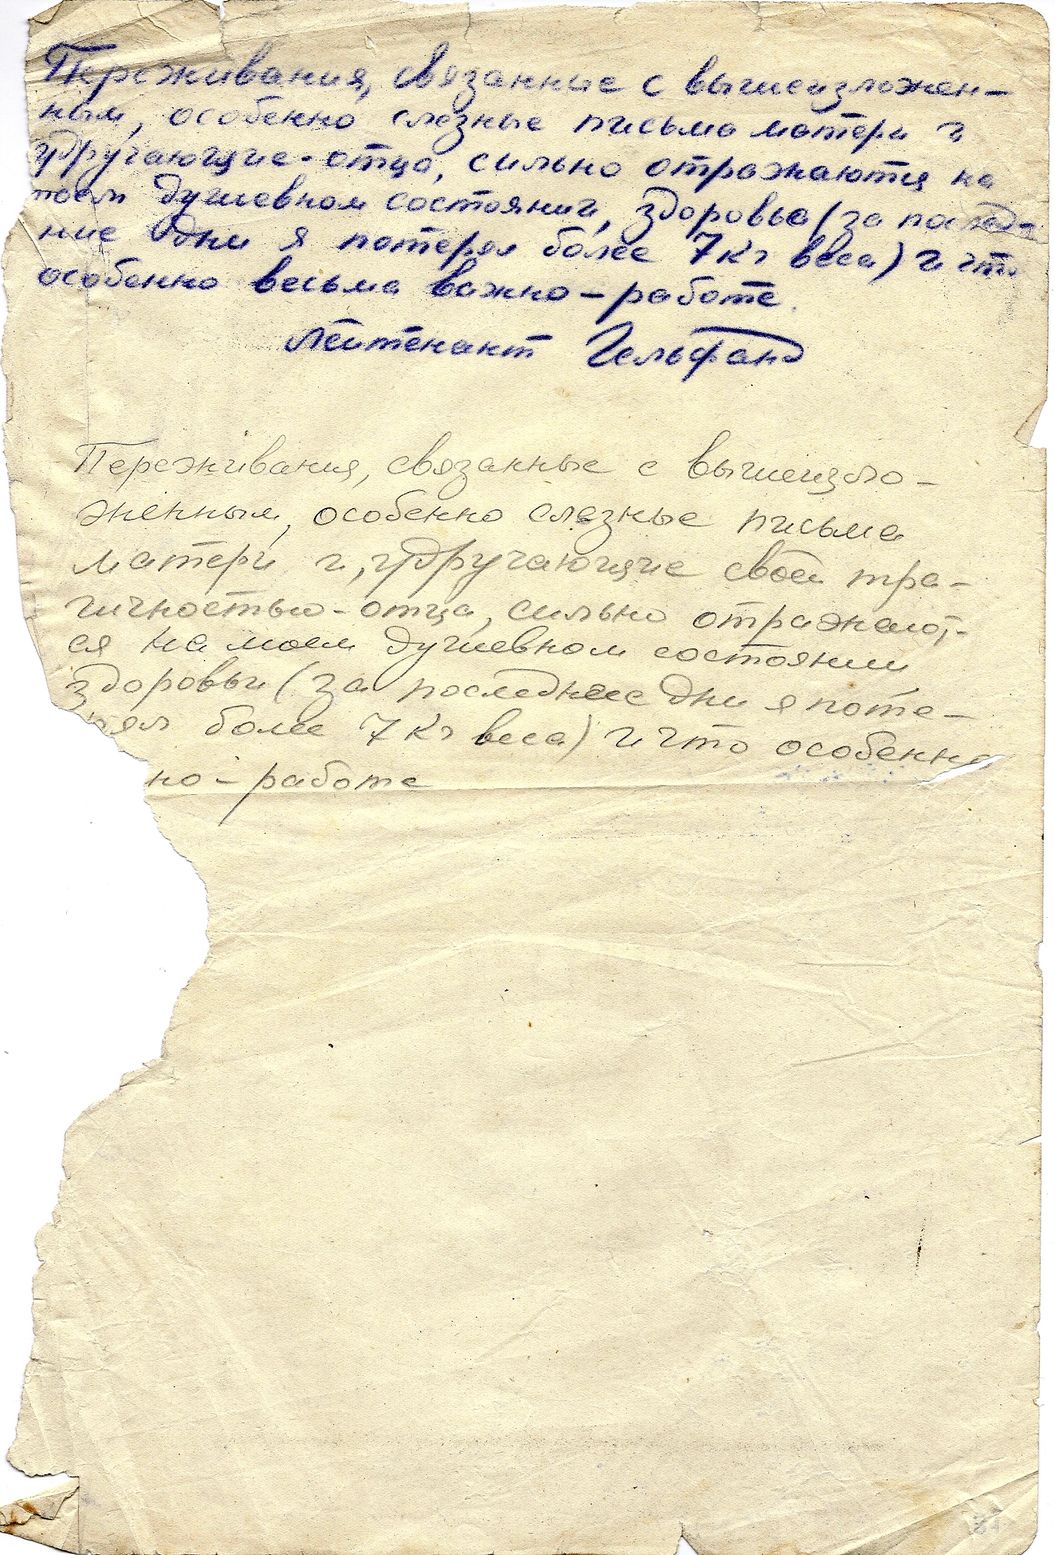 Переживания, связанные с вышеизложен-
ным, особенно слезные письма матери и
удручающие - отца, сильно отражаются на
моем душевном состоянии, здоровье (за послед-
ние дни я потерял более 7 кг веса) и что
особенно весьма важно - работе.
Лейтенант Гельфанд
Переживания, связанные с вышеизло-
женным, особенно слезные письма
матери и, удручающие своей тра-
гичностью - отца, сильно отражают-
ся на моем душевном состоянии
здоровьи (за последнее дни я поте-
рял более 7 кг веса) и что особенно
но - работе